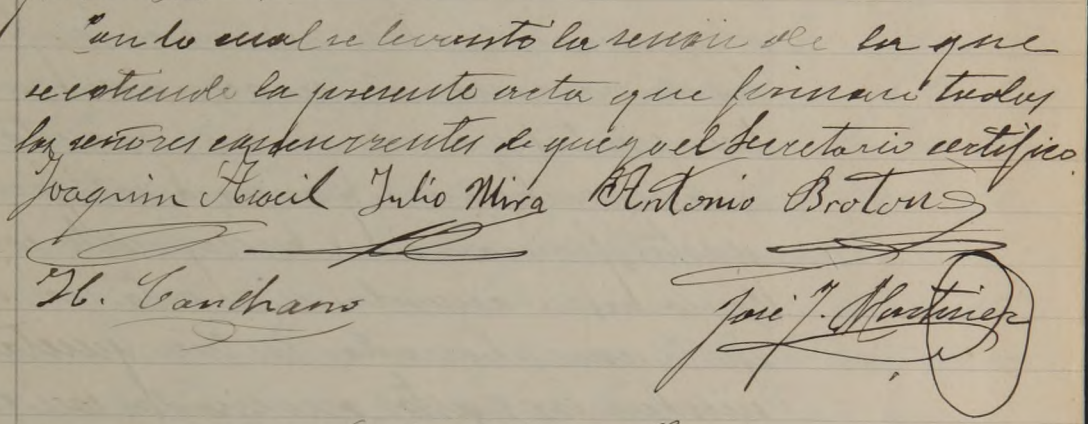 con lo cual se levantó la sesión de la que
se extiende la presente acta que firman todos
los señores concurrentes de que yo el Secretario certifico
Joaquin Aracil Julio Mira Antonio Brotons
H. Canchano
José J. Martinez